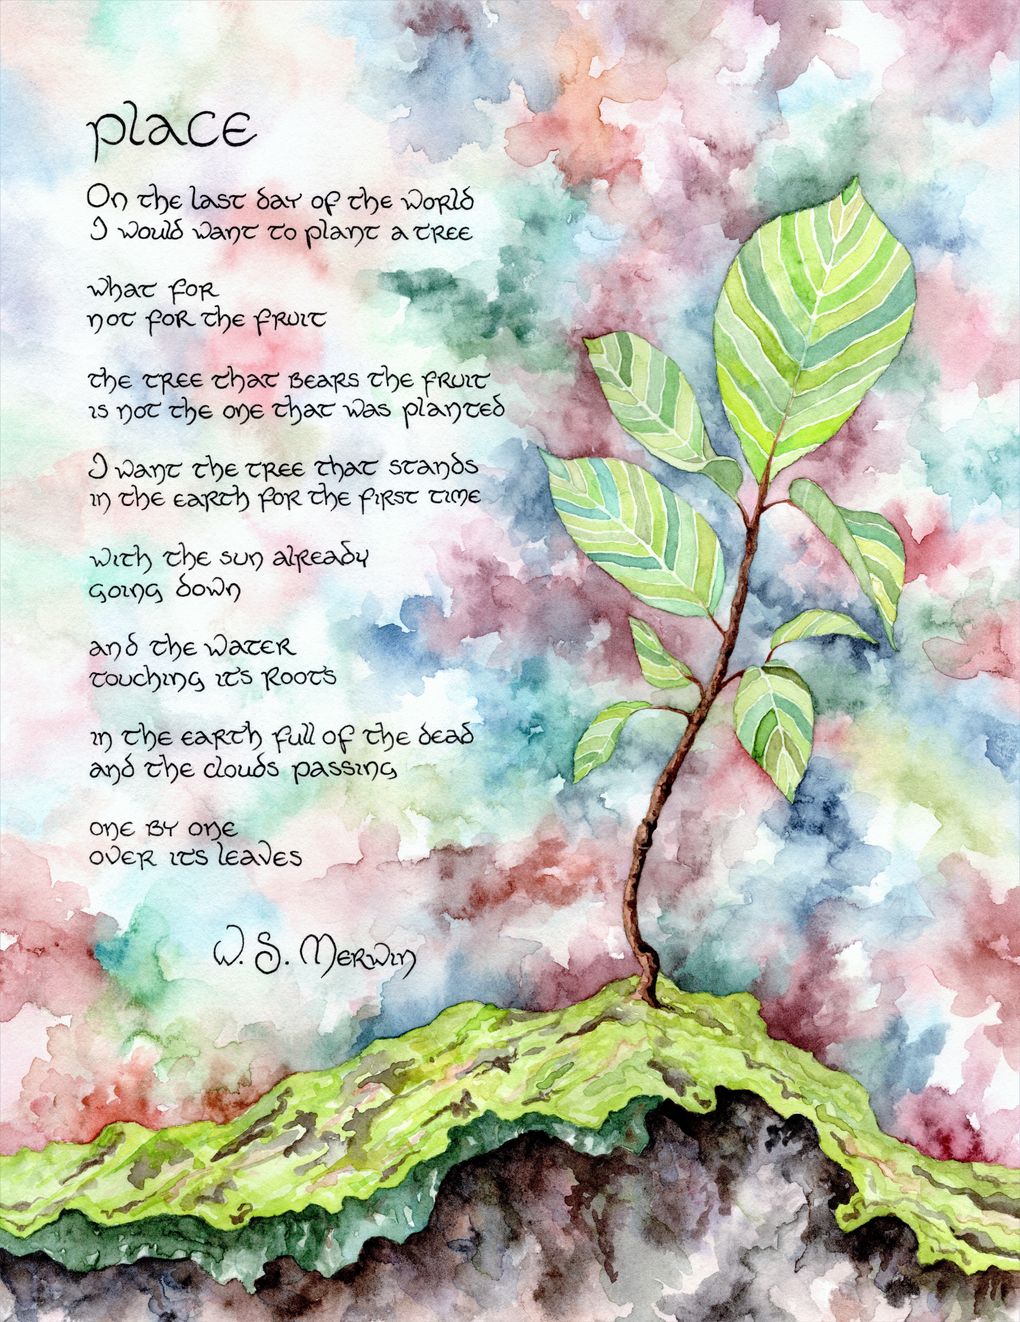 place
On the last day of the world
I would want to plant a tree
what for
not for the fruit
the tree that bears the fruit
is not the one that was planted
I want the tree that stands
in the earth for the first time
with the sun already
going down
and the water
touching it's roots
in the earth full of the dead
and the clouds passing
one by one
over it's leaves
W. S. Merwin